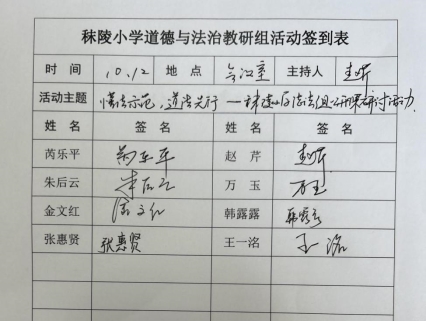 秣陵小学道德与法治教研组活动签到表
时 间 10.12 地 点 会议室 主持人 赵芹
活动主题 懂法示范,道法先行 —秣小道法组公开课研讨活动
姓 名 签 名 姓 名 签 名
芮乐平 芮乐平 赵 芹 赵芹
朱后云 朱后云 万 玉 万玉
金文红 金文红 韩露露 韩露露
张惠贤 张惠贤 王一洺 王一洺